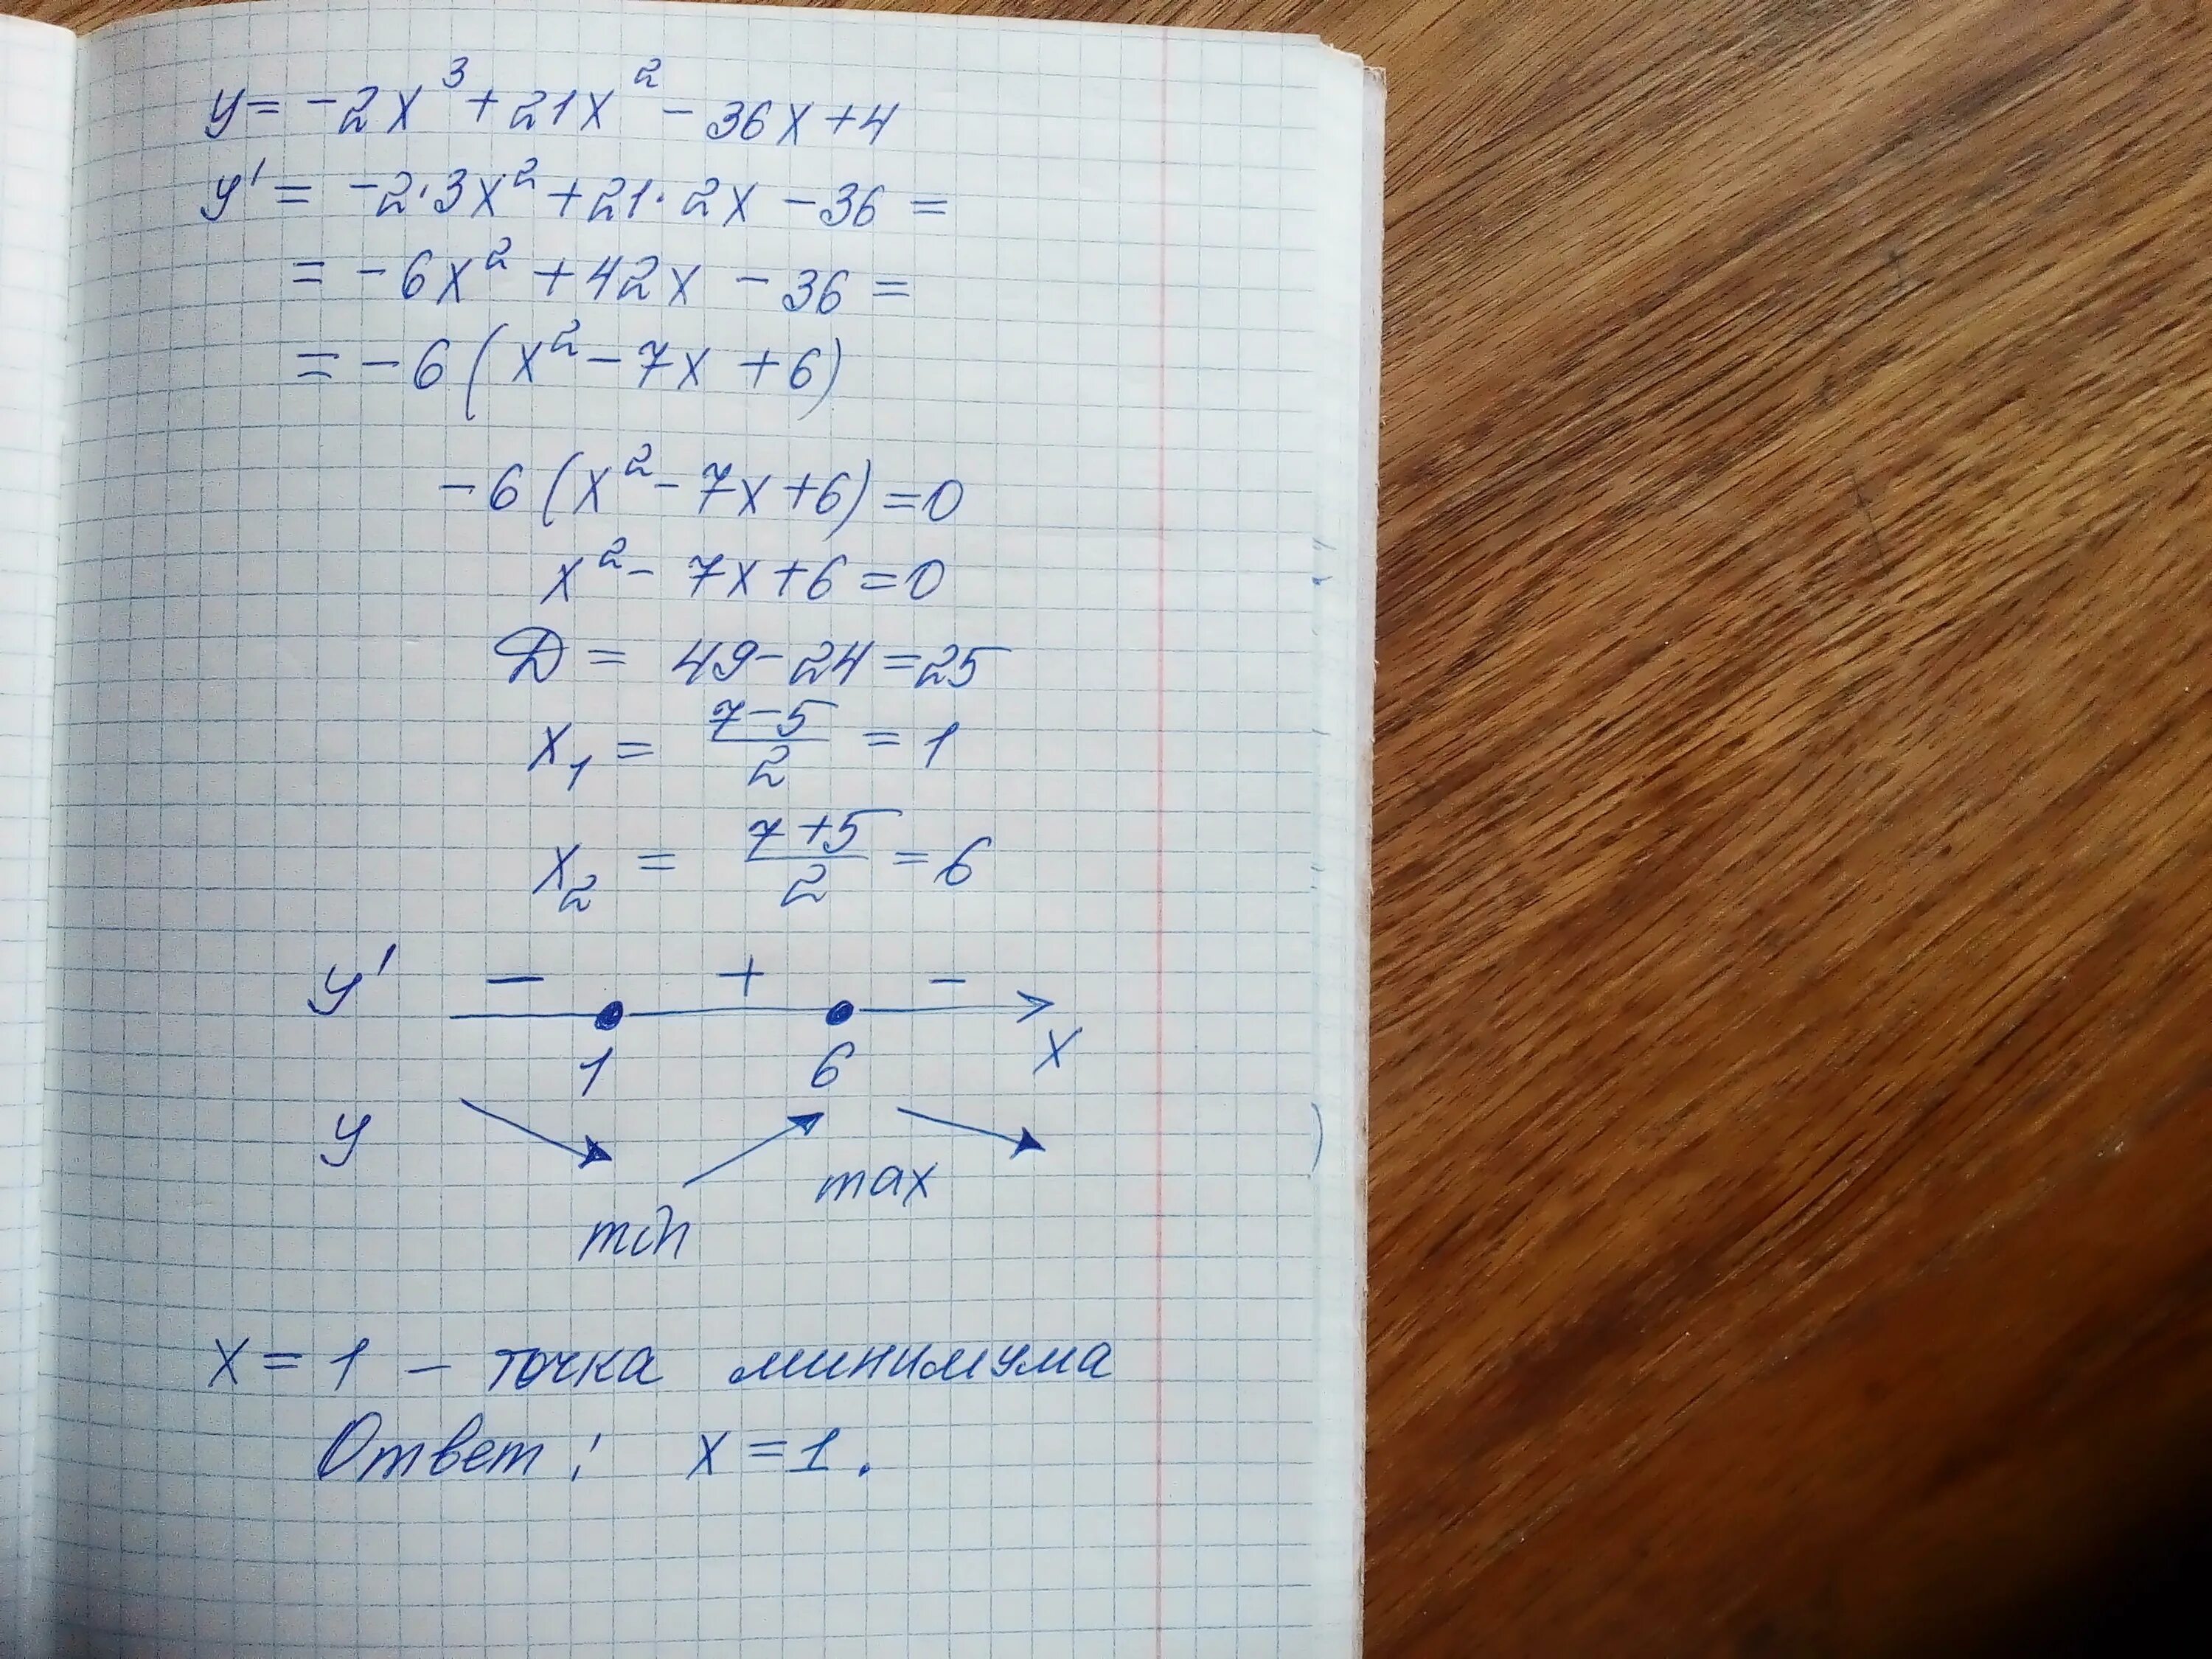 y = -2x³ + 21x² - 36x + 4
y' = -2·3x² + 21·2x - 36 =
= -6x² + 42x - 36 =
= -6(x² - 7x + 6)
-6(x² - 7x + 6) = 0
x² - 7x + 6 = 0
D = 49 - 24 = 25
x₁ = (7-5)/2 = 1
x₂ = (7+5)/2 = 6
y' - + -
1 6 x
y
max
min
x = 1 - точка минимума
Ответ: x = 1.